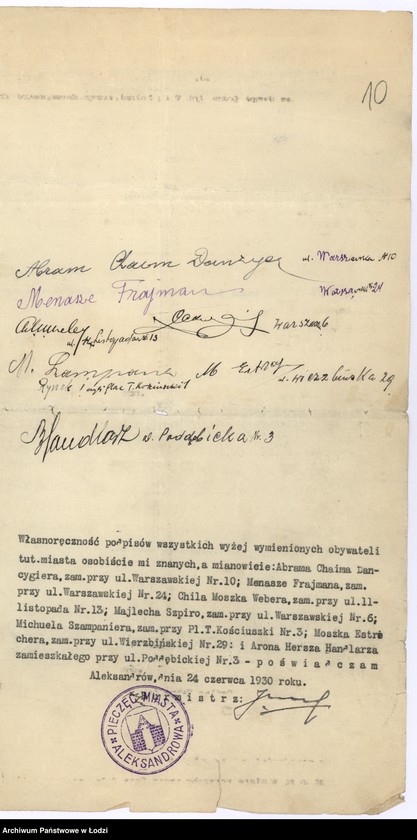 10
Abram Chaim Dancyger ul. Warszawska N10
Menasze Frajman Warszawska 24
ul. 11 Listopada No 13 Warszaska 6
M. Szampanier M Estr ul. Wierzbińska 29
Rynek T. Kościuszki
AHandlarz ul. Poddębicka Nr. 3
Własnoręczność podpisów wszystkich wyżej wymienionych obywateli
tut.miasta osobiście mi znanych,a mianowicie:Abrama Chaima Dan-
cygiera,zam.przy ul.Warszawskiej Nr.10; Menasze Frajmana,zam.
przy ul.Warszawskiej Nr.24; Chila Moszka Webera,zam.przy ul.11-
listopada Nr.13; Majlecha Szpiro,zam.przy ul.Warszawskiej Nr.6;
Michuela Szampaniera,zam.przy Pl.T.Kościuszki Nr.3; Moszka Estre
chera,zam.przy ul.Wierzbińskiej Nr.29: i Arona Hersza Handlarza
zamieszkałego przy ul.Poddębickiej Nr.3 - p o ś w i a d c z a m
Aleksandrów,dnia 24 czerwca 1930 roku.
Burmistrz:
PIECZĘĆ MIASTA ALEKSANDROWA
Archiwum Państwowe w Łodzi